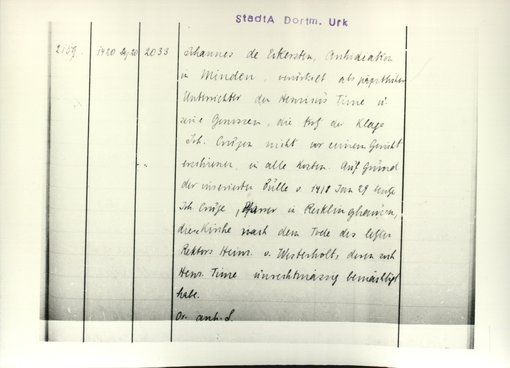 StadtA Dortm. Urk
2159. 1420 Sep 20 2033 Johannes de Ekersten, Archidiakon
in Minden, verurteilt als päpstlicher
Unterrichter den Henricus Time u
seine Genossen, die auf die Klage
Joh. Cruse nicht vor seinem Gericht
erschienen, in alle Kosten. Auf Grund
der inserierten Bulle v. 1418 Jan 29
Joh. Cruse, Pfarrer in Recklinghausen,
diese Kirche nach dem Tode des letzten
Rektors Heinr. v. Westerholt, deren sich
Henr. Time unrechtmässig bemächtigt
habe.
Or.